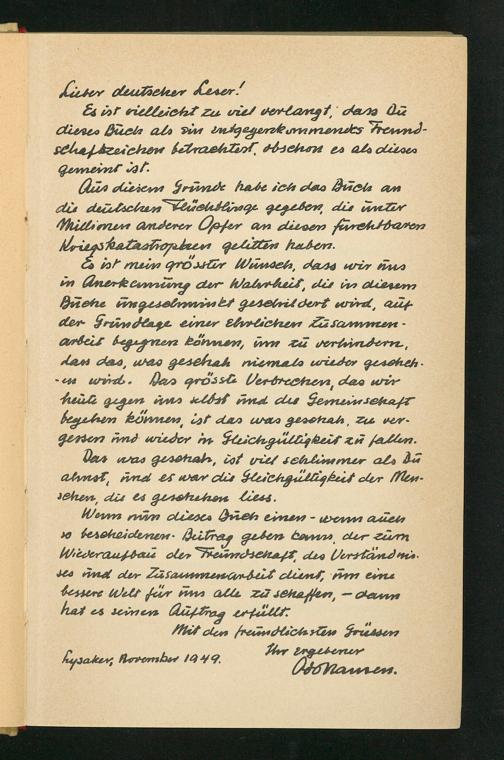 Lieber deutscher Leser!
Es ist vielleicht zu viel verlangt, dass Du
dieses Buch als ein entgegenkommendes Freund-
schaftszeichen betrachtest, obschon es als dieses
gemeint ist.
Aus diesem Grunde habe ich das Buch an
die deutschen Flüchtlinge gegeben, die unter
Millionen anderer Opfer an diesen furchtbaren
Kriegskatastrophen gelitten haben.
Es ist mein grösster Wunsch, dass wir uns
in Anerkennung der Wahrheit, die in diesem
Buche ungeschminkt geschildert wird, auf
der Grundlage einer ehrlichen Zusammen-
arbeit begegnen können, um zu verhindern,
dass das, was geschah niemals wieder gescheh-
-en wird. Das grösste Verbrechen, das wir
heute gegen uns selbst und die Gemeinschaft
begehen können, ist das was geschah, zu ver-
gessen und wieder in Gleichgültigkeit zu fallen.
Das was geschah, ist viel schlimmer als Du
ahnst, und es war die Gleichgültigkeit der Men-
schen, die es geschehen liess.
Wenn nun dieses Buch einen - wenn auch
so bescheidenen - Beitrag geben kann, der zum
Wiederaufbau der Freundschaft, des Verständnis-
ses und der Zusammenarbeit dient, um eine
bessere Welt für uns alle zu schaffen, - dann
hat es seinen Auftrag erfüllt.
Mit den freundlichsten Grüssen
Ihr ergebener
Lysaker, November 1949.
Odd Nansen.